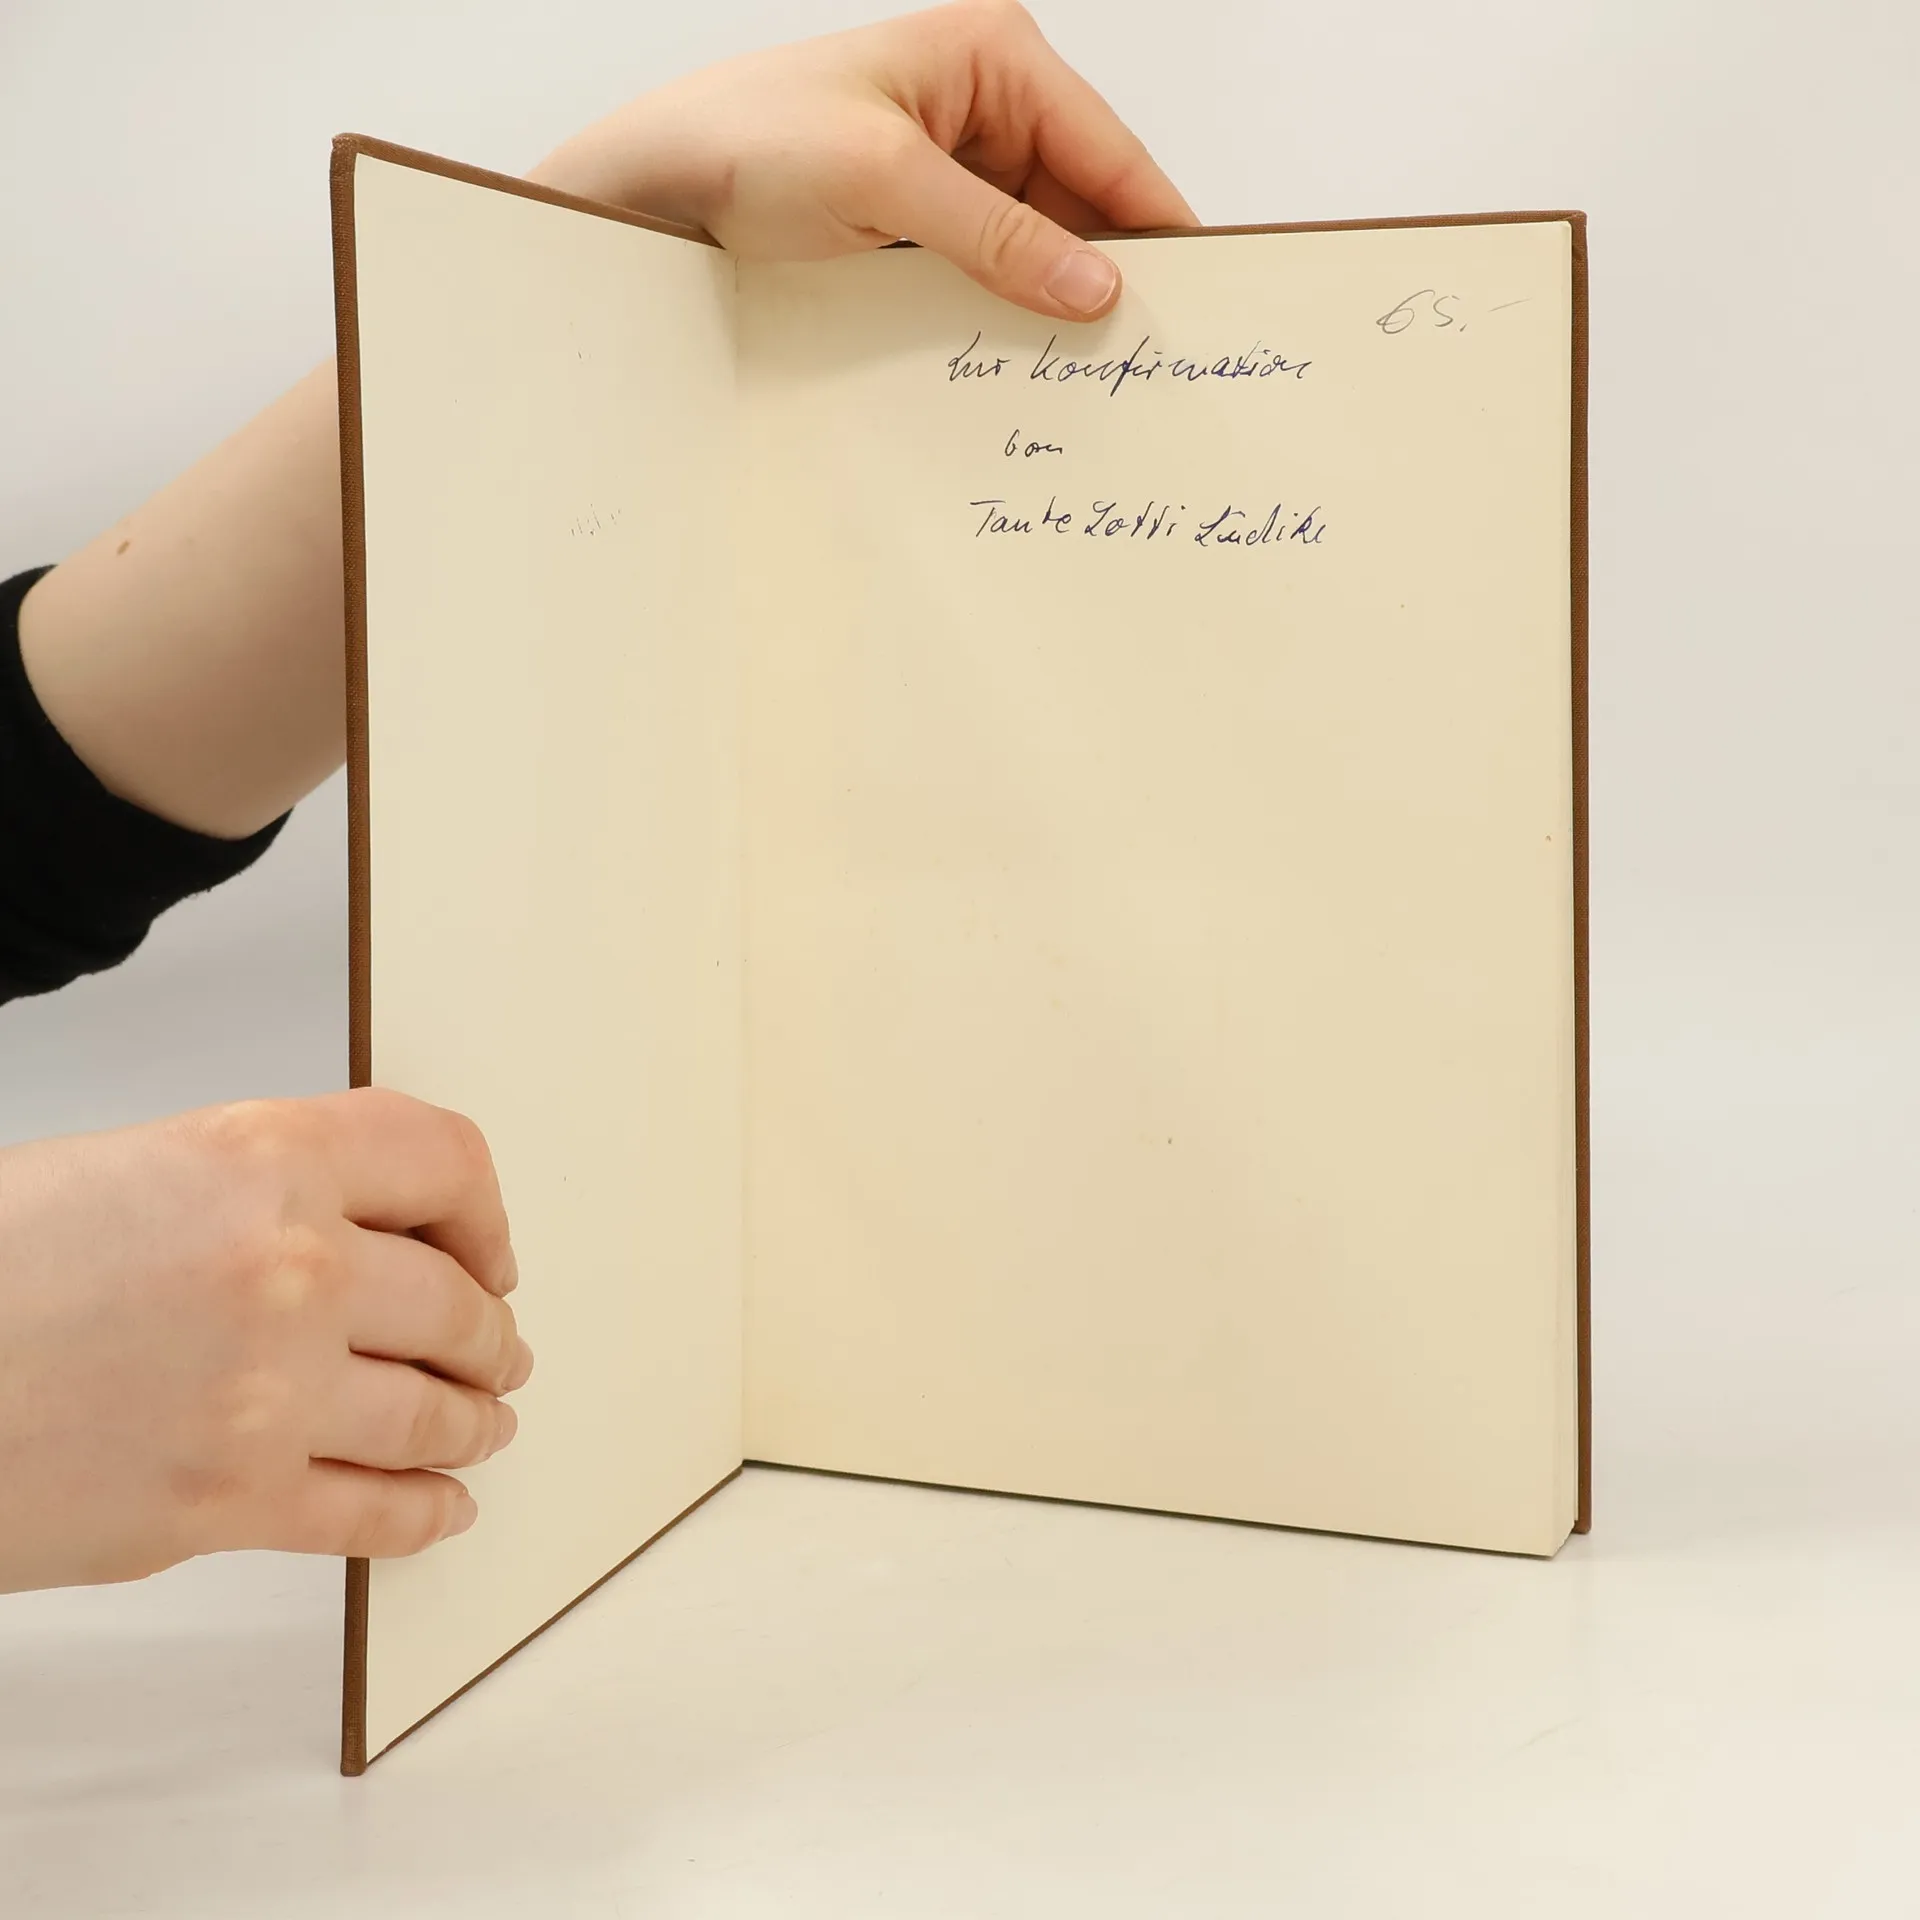 65.-
Zur Konfirmation
von
Tante Lotti Lüdike